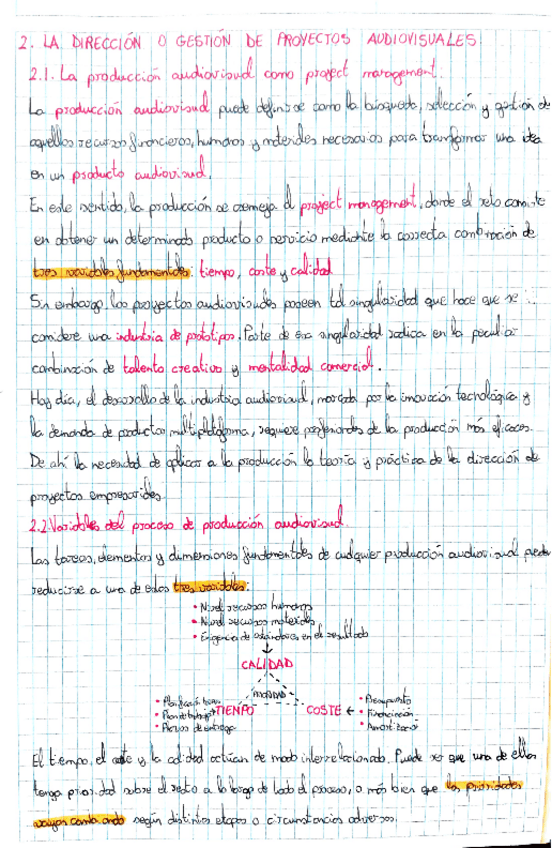 2. LA DIRECCIÓN O GESTIÓN DE PROYECTOS AUDIOVISUALES
2.1. La producción audiovisual como project management.
La producción audiovisual puede definirse como la búsqueda, selección y gestión de
aquellos recursos financieros, humanos y materiales necesarios para transformar una idea
en un producto audiovisual.
En este sentido, la producción se asemeja al project management, donde el reto consiste
en obtener un determinado producto o servicio mediante la correcta combinación de
tres variables fundamentales: tiempo, coste y calidad
Sin embargo, los proyectos audiovisuales poseen tal singularidad que hace que se
considere una industria de prototipos. Parte de esa singularidad radica en la peculiar
combinación de talento creativo y mentalidad comercial.
Hoy día, el desarrollo de la industria audiovisual, marcada por la innovación tecnológica y
la demanda de productos multiplataforma, requiere profesionales de la producción más eficaces.
De ahí la necesidad de aplicar a la producción la teoría y práctica de la dirección de
proyectos empresariales.
2.2 Variables del proceso de producción audiovisual.
Las tareas, elementos y dimensiones fundamentales de cualquier producción audiovisual pueden
reducirse a una de estas tres variables:
• Nivel recursos humanos
• Nivel recursos materiales
• Exigencia de estándares en el resultado
CALIDAD
• Planificación
• Plan de trabajo
• Plazos de entrega
TIEMPO
COSTE
• Presupuesto
• Financiación
• Amortización
El tiempo, el coste y la calidad actúan de modo interrelacionado. Puede ser que una de ellas
tenga prioridad sobre el resto a lo largo de todo el proceso, o más bien que las prioridades
vayan cambiando según distintas etapas o circunstancias adversas.